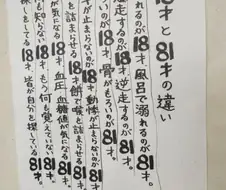 18才と81才の違い
れるのが18才、風呂で溺れるのが81才。
走するのが18才、逆走するのが81才。
いのが18才、骨がもろいのが81才。
が止まらないのが18才、動悸が止まらないのが81才。
詰まらせる18才、餅で喉を詰まらせる81才。
が気になる18才、血圧・血糖値が気になる81才。
も知らない18才、もう何も覚えていない81才。
探しをしてる18才、皆が自分を探している81才。